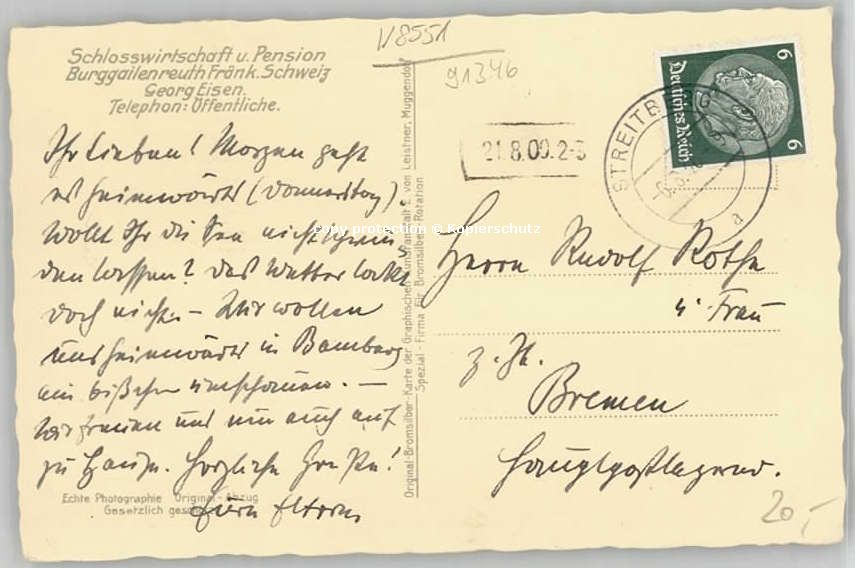 V8551
91346
Schlosswirtschaft u. Pension
Burggailenreuth Fränk. Schweiz
Georg Eisen.
Telephon: Öffentliche.
Ihr Lieben! Morgen geht
es heimwärts (Donnerstag)
Wollt Ihr die See nicht schwin
den lassen? Das Wetter lockt
doch nicht. – Wir wollen
uns heimwärts in Bamberg
ein bißchen umschauen. –
Wir freuen uns nun auch auf
zu Hause. Herzliche Grüße!
Eure Eltern
Echte Photographie Original-Abzug
Gesetzlich
Original-Bromsilber-Karte der Graphischen Kunstanstalt E. von Leistner, Muggendorf
Spezial-Firma für Bromsilber-Rotation
copy protection © Kopierschutz
21.8.00.2-3
STREITBERG
a
6 6
Deutsches Reich
Herrn Rudolf Rothe
u. Frau
z. Zt.
Bremen
Hauptpostlagernd.
20,-